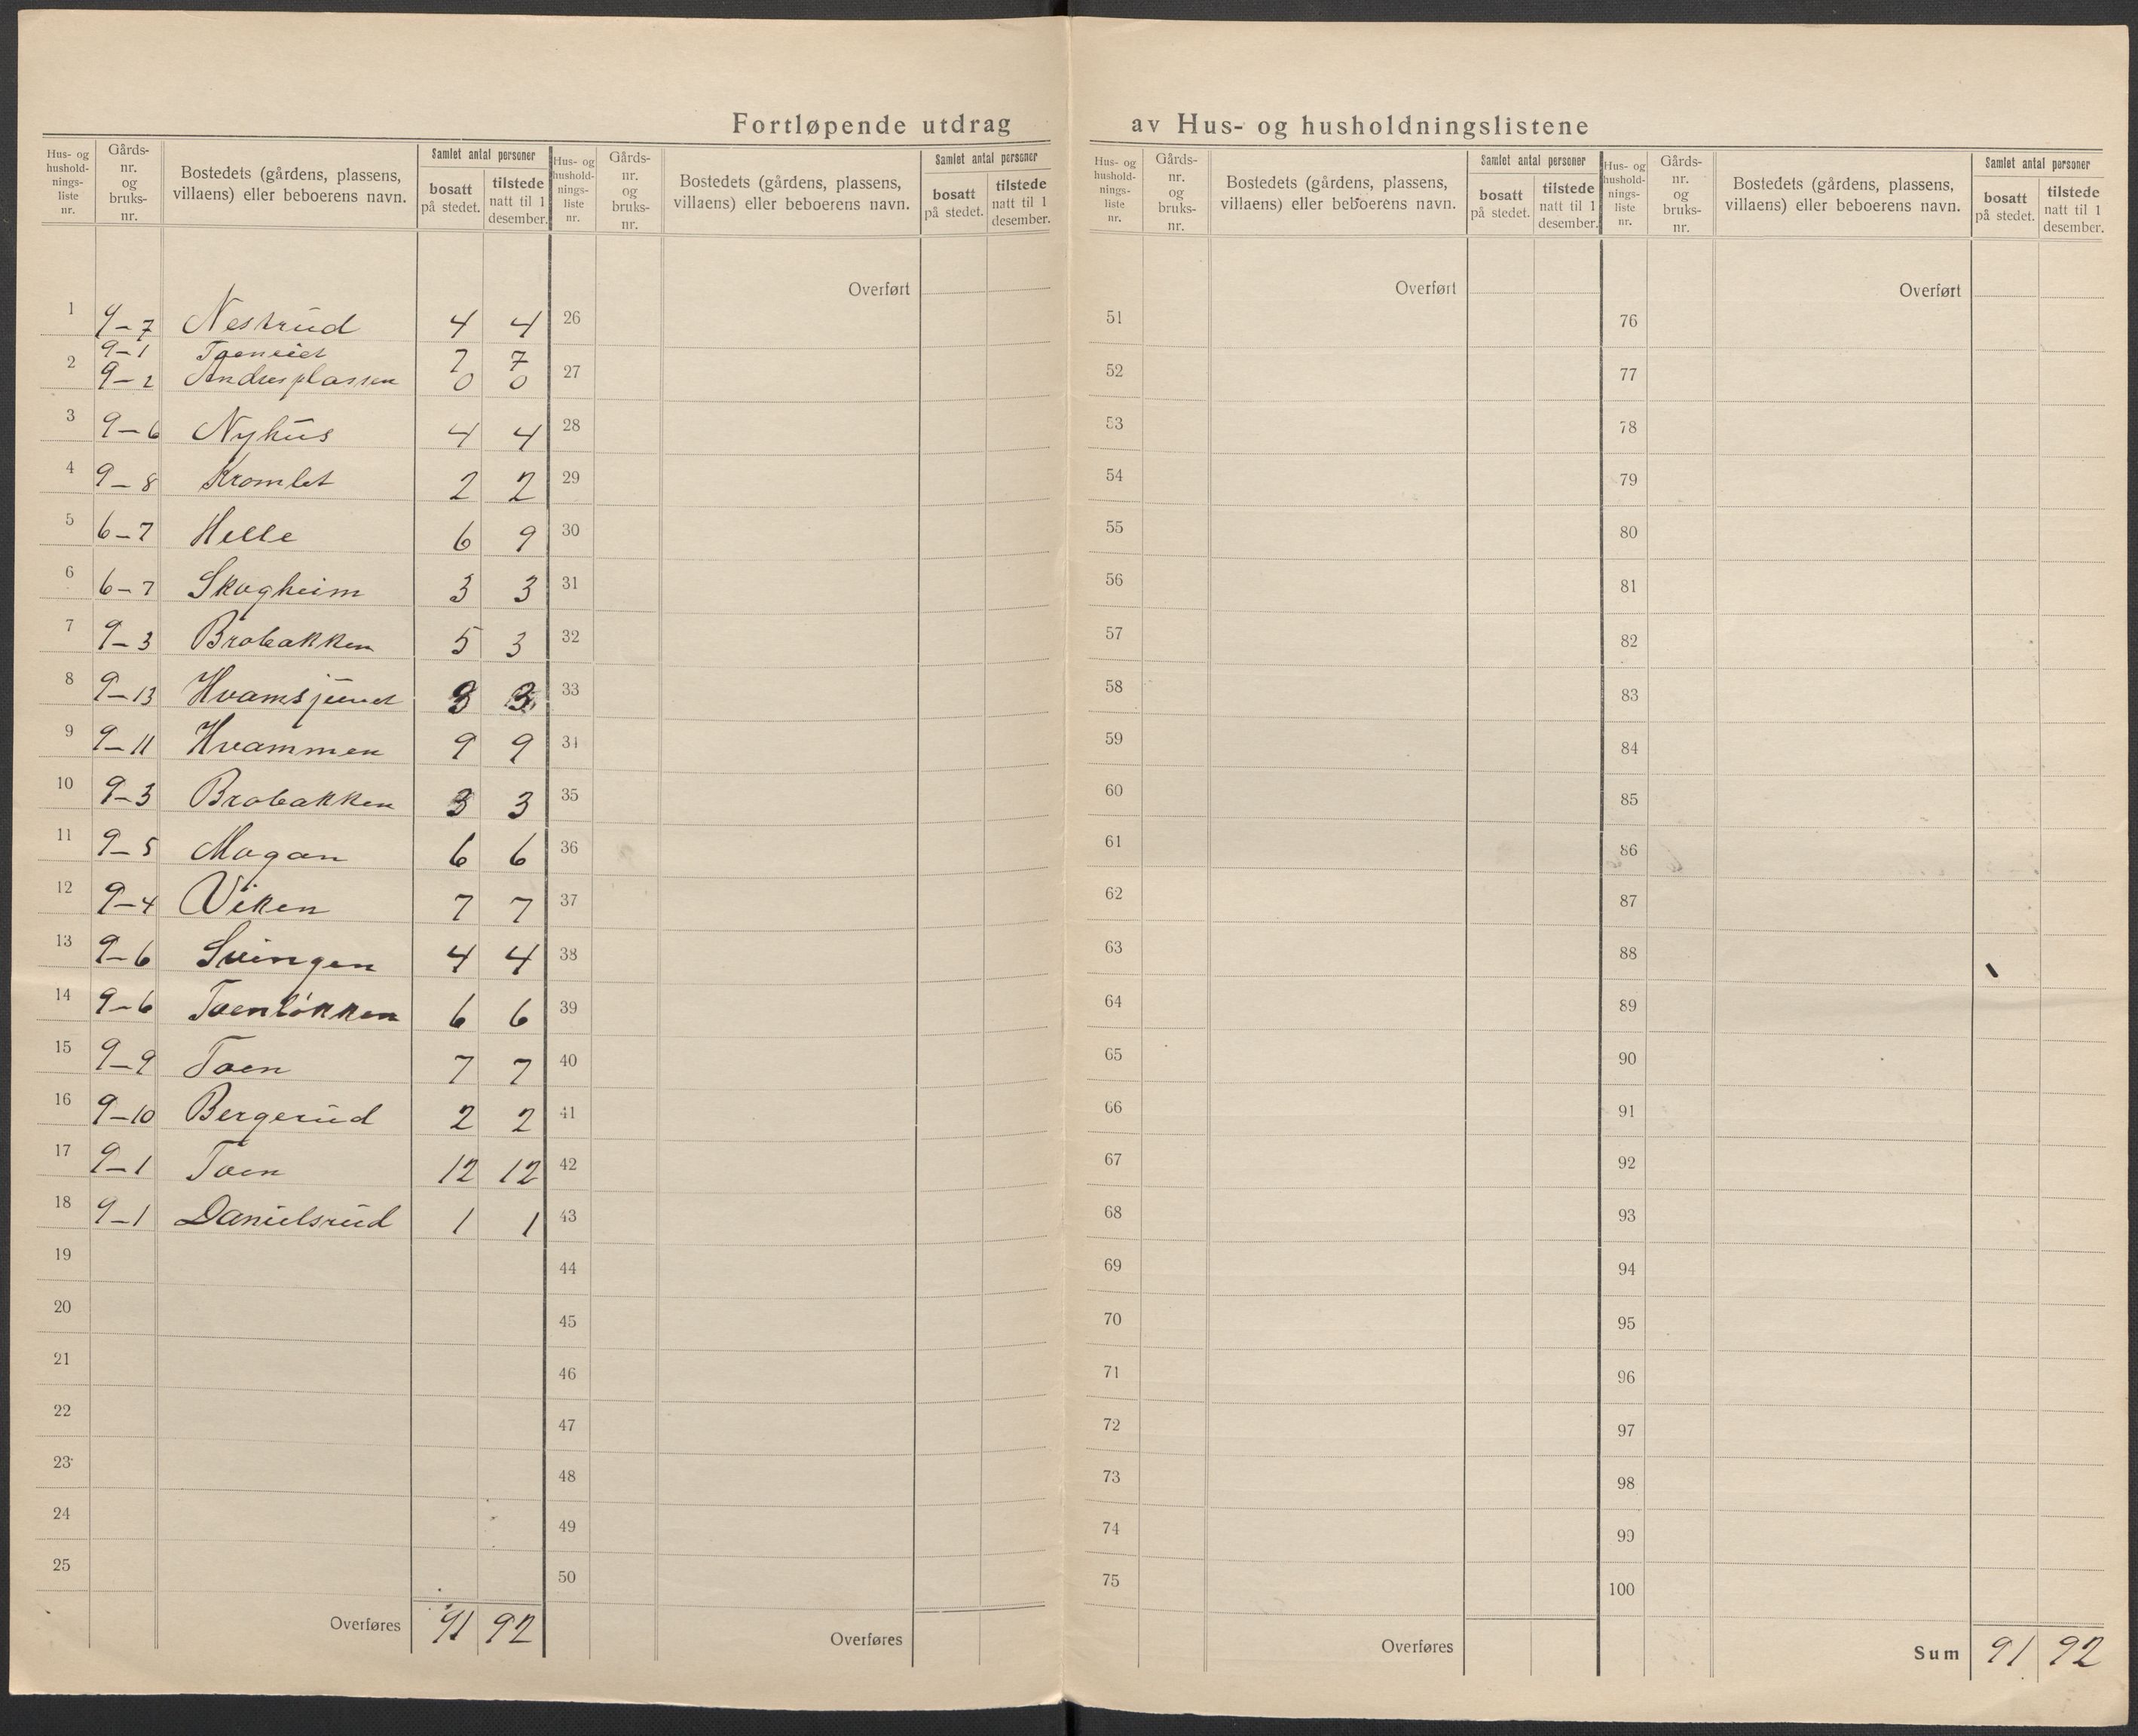 Fortløpende utdrag av Hus- og husholdningslistene
Hus- og hushold-nings-liste nr. Gårds-nr. og bruks-nr. Bostedets (gårdens, plassens, villaens) eller beboerens navn. Samlet antal personer bosatt på stedet. tilstede natt til 1 desember.
Hus- og hushold-nings-liste nr. Gårds-nr. og bruks-nr. Bostedets (gårdens, plassens, villaens) eller beboerens navn. Samlet antal personer bosatt på stedet. tilstede natt til 1 desember.
Hus- og hushold-nings-liste nr. Gårds-nr. og bruks-nr. Bostedets (gårdens, plassens, villaens) eller beboerens navn. Samlet antal personer bosatt på stedet. tilstede natt til 1 desember.
Hus- og hushold-nings-liste nr. Gårds-nr. og bruks-nr. Bostedets (gårdens, plassens, villaens) eller beboerens navn. Samlet antal personer bosatt på stedet. tilstede natt til 1 desember.
1 9-7 Nestrud 4 4
2 9-1 7 7
9-2 Andersplassen 0 0
3 9-6 Nyhus 4 4
4 9-8 Kromlet 2 2
5 6-7 Helle 6 9
6 6-7 Skogheim 3 3
7 9-3 Brobakken 5 3
8 9-13 3 3
9 9-11 Hvammen 9 9
10 9-3 Brobakken 3 3
11 9-5 Mogan 6 6
12 9-4 Viken 7 7
13 9-6 Svingen 4 4
14 9-6 Toenløkken 6 6
15 9-9 Toen 7 7
16 9-10 Bergerud 2 2
17 9-1 Toen 12 12
18 9-1 Danielsrud 1 1
19
20
21
22
23
24
25
Overføres 91 92
Overført
26
27
28
29
30
31
32
33
34
35
36
37
38
39
40
41
42
43
44
45
46
47
48
49
50
Overføres
Overført
51
52
53
54
55
56
57
58
59
60
61
62
63
64
65
66
67
68
69
70
71
72
73
74
75
Overføres
Overført
76
77
78
79
80
81
82
83
84
85
86
87
88
89
90
91
92
93
94
95
96
97
98
99
100
Sum 91 92